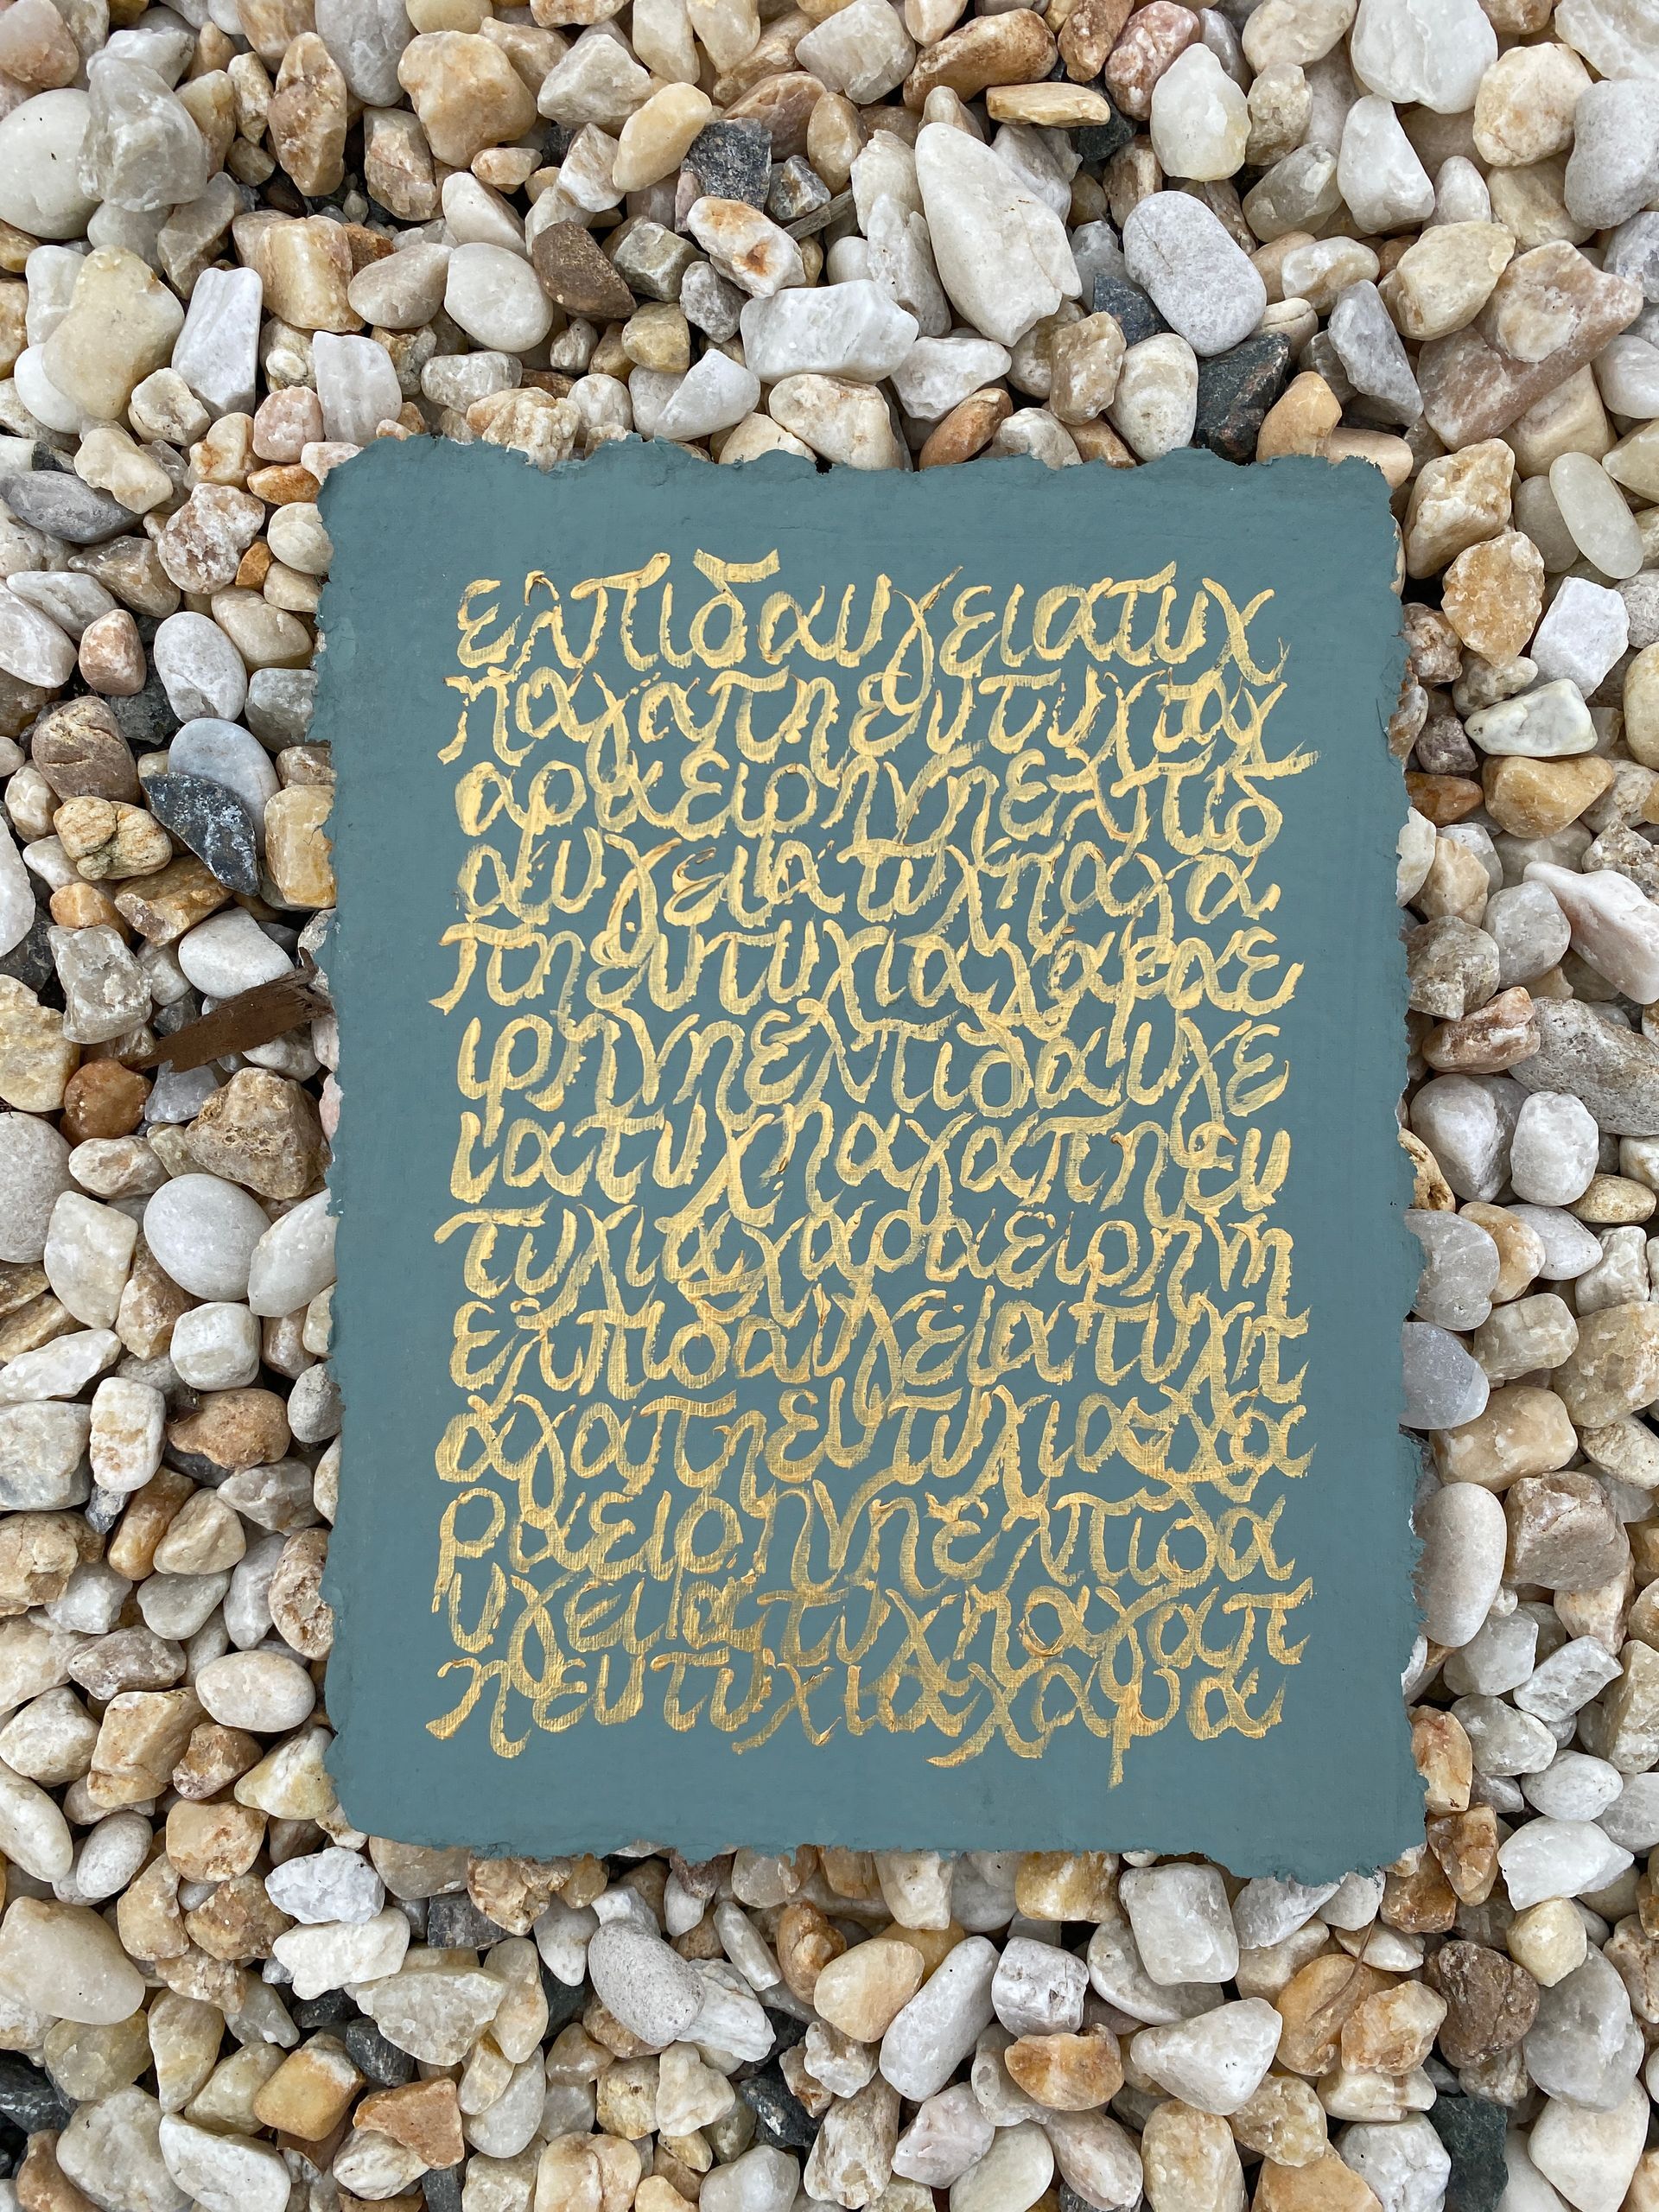 ελπιδαυγειατυχ
ηαγαπηευτυχιαχ
αραειρηνηελπιδ
αυγειατυχηαγα
πηευτυχιαχαραε
ιρηνηελπιδαυγε
ιατυχηαγαπηευ
τυχιαχαραειρηνη
ελπιδαυγειατυχη
αγαπηευτυχιαχα
ραειρηνηελπιδα
υγειατυχηαγαπ
ηευτυχιαχαρα